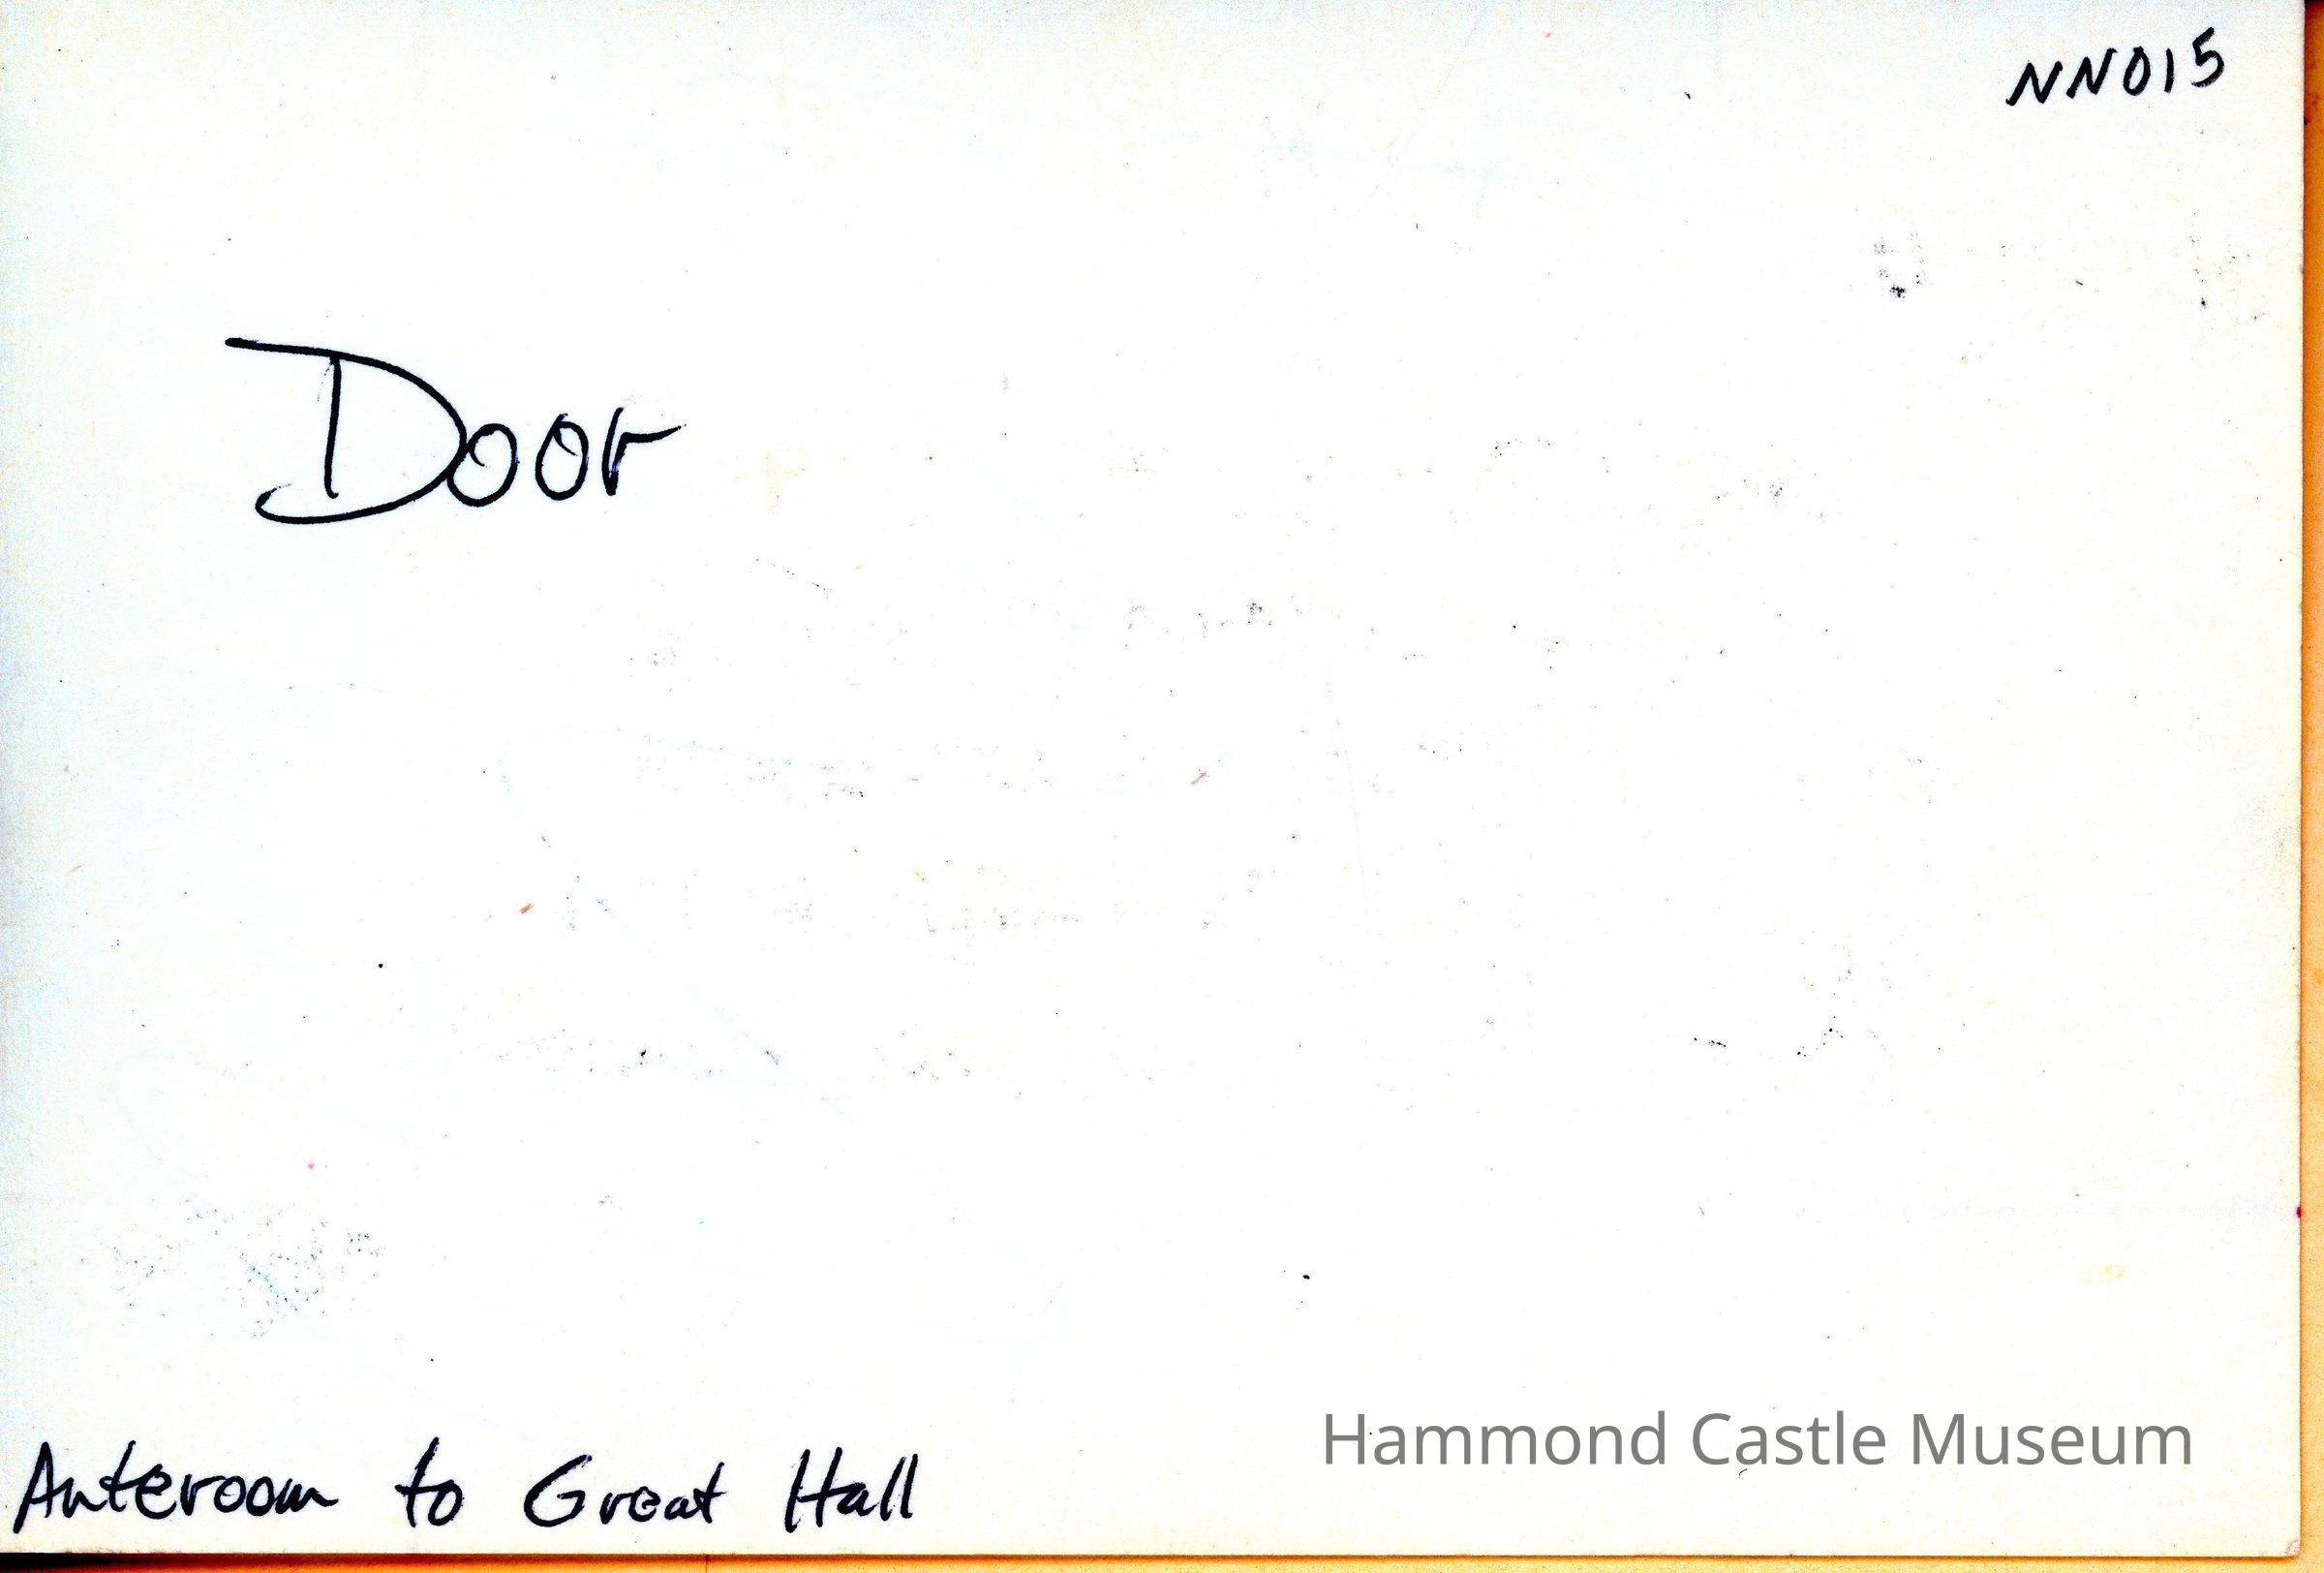 NN015
Door
Anteroom to Great Hall
Hammond Castle Museum